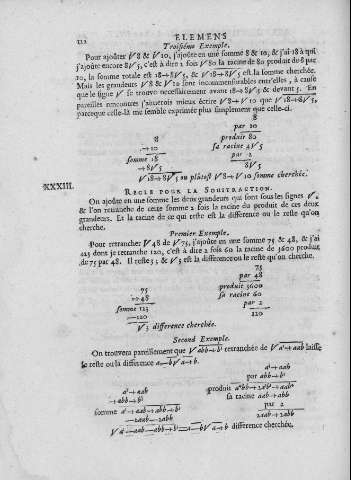 112 ELEMENS
Troisiéme Exemple.
Pour ajoûter V8 & V10, j'ajoûte en une somme 8 & 10, & j'ai 18 à qui
j'ajoûte encore 8V5, c'est à dire 2 fois V80 la racine de 80 produit de 8 par
10, la somme totale est 18+8V5, & V18+8V5 est la somme cherchée.
Mais les grandeurs V8 & V10 sont incommensurables entr'elles, à cause
que le signe V se trouve necessairement avant 18+8V5 & devant 5. En
pareilles rencontres j'aimerois mieux écrire V8+V10 que V18+8V5,
parceque celle-là me semble exprimée plus simplement que celle-ci.
8
par 10
8 produit 80
+10 sa racine 4V5
somme 18 par 2
+8V5 8V5
V18+8V5 ou plûtost V8+V10 somme cherchée.
XXXIII. REGLE POUR LA SOUSTRACTION.
On ajoûte en une somme les deux grandeurs qui sont sous les signes V,
& l'on retranche de cette somme 2 fois la racine du produit de ces deux
grandeurs. Et la racine de ce qui reste est la difference ou le reste qu'on
cherche.
Premier Exemple.
Pour retrancher V48 de V75, j'ajoûte en une somme 75 & 48, & j'ai
123 dont je retranche 120, c'est à dire 2 fois 60 la racine de 3600 produit
de 75 par 48. Il reste 3; & V3 est la difference ou le reste qu'on cherche.
75
par 48
75 produit 3600
+48 sa racine 60
somme 123 par 2
—120 120
V3 difference cherchée.
Second Exemple.
On trouvera pareillement que V abb+b³ retranchée de V a³+aab laisse
le reste ou la différence a—b V a+b.
a³+aab
par abb+b³
a³+aab produit a⁴bb+2a³b³+aab⁴
+abb+b³ sa racine aab+abb
somme a³+aab+abb+b³ par 2
—2aab—2abb 2aab+2abb
V a³—aab—abb+b³=a—b V a+b difference cherchée.